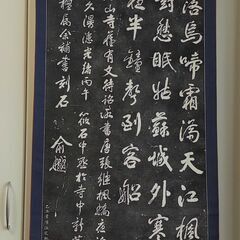 落烏啼霜滿天江楓
對愁眠姑蘇城外寒
夜半鐘聲到客船
山寺舊有文待詔所書唐張繼楓橋夜泊
久漫漶光緒丙午筱石中丞於寺中新葺
楹屬余補書刻石 俞樾